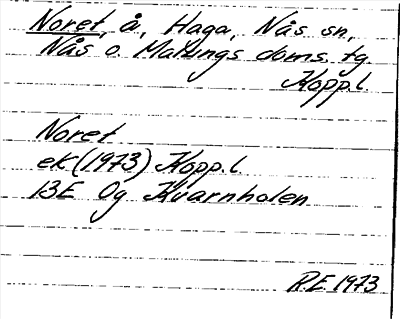 Noret, å, Haga, Nås sn,
Nås o. Malungs doms. tg
Kopp.l.
Noret
ek (1973) Kopp.l.
13E Og Kvarnholen
R.E. 1973